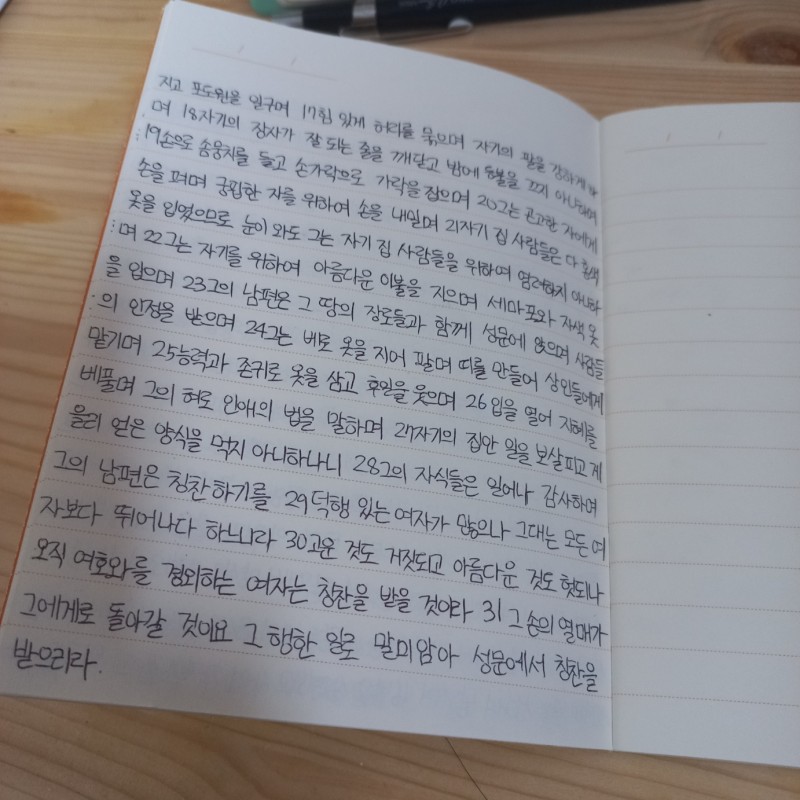 지고 포도원을 일구며 17힘 있게 허리를 묶으며 자기의 팔을 강하게 하
며 18자기의 장사가 잘 되는 줄을 깨닫고 밤에 등불을 끄지 아니하며
19손으로 솜뭉치를 들고 손가락으로 가락을 잡으며 20그는 곤고한 자에게
손을 펴며 궁핍한 자를 위하여 손을 내밀며 21자기 집 사람들은 다 홍색
옷을 입었으므로 눈이 와도 그는 자기 집 사람들을 위하여 염려하지 아니하
며 22그는 자기를 위하여 아름다운 이불을 지으며 세마포와 자색 옷
을 입으며 23그의 남편은 그 땅의 장로들과 함께 성문에 앉으며 사람들
의 인정을 받으며 24그는 베로 옷을 지어 팔며 띠를 만들어 상인들에게
맡기며 25능력과 존귀로 옷을 삼고 후일을 웃으며 26입을 열어 지혜를
베풀며 그의 혀로 인애의 법을 말하며 27자기의 집안 일을 보살피고 게
을리 얻은 양식을 먹지 아니하나니 28그의 자식들은 일어나 감사하며
그의 남편은 칭찬하기를 29덕행 있는 여자가 많으나 그대는 모든 여
자보다 뛰어나다 하느니라 30고운 것도 거짓되고 아름다운 것도 헛되나
오직 여호와를 경외하는 여자는 칭찬을 받을 것이라 31그 손의 열매가
그에게로 돌아갈 것이요 그 행한 일로 말미암아 성문에서 칭찬을
받으리라.